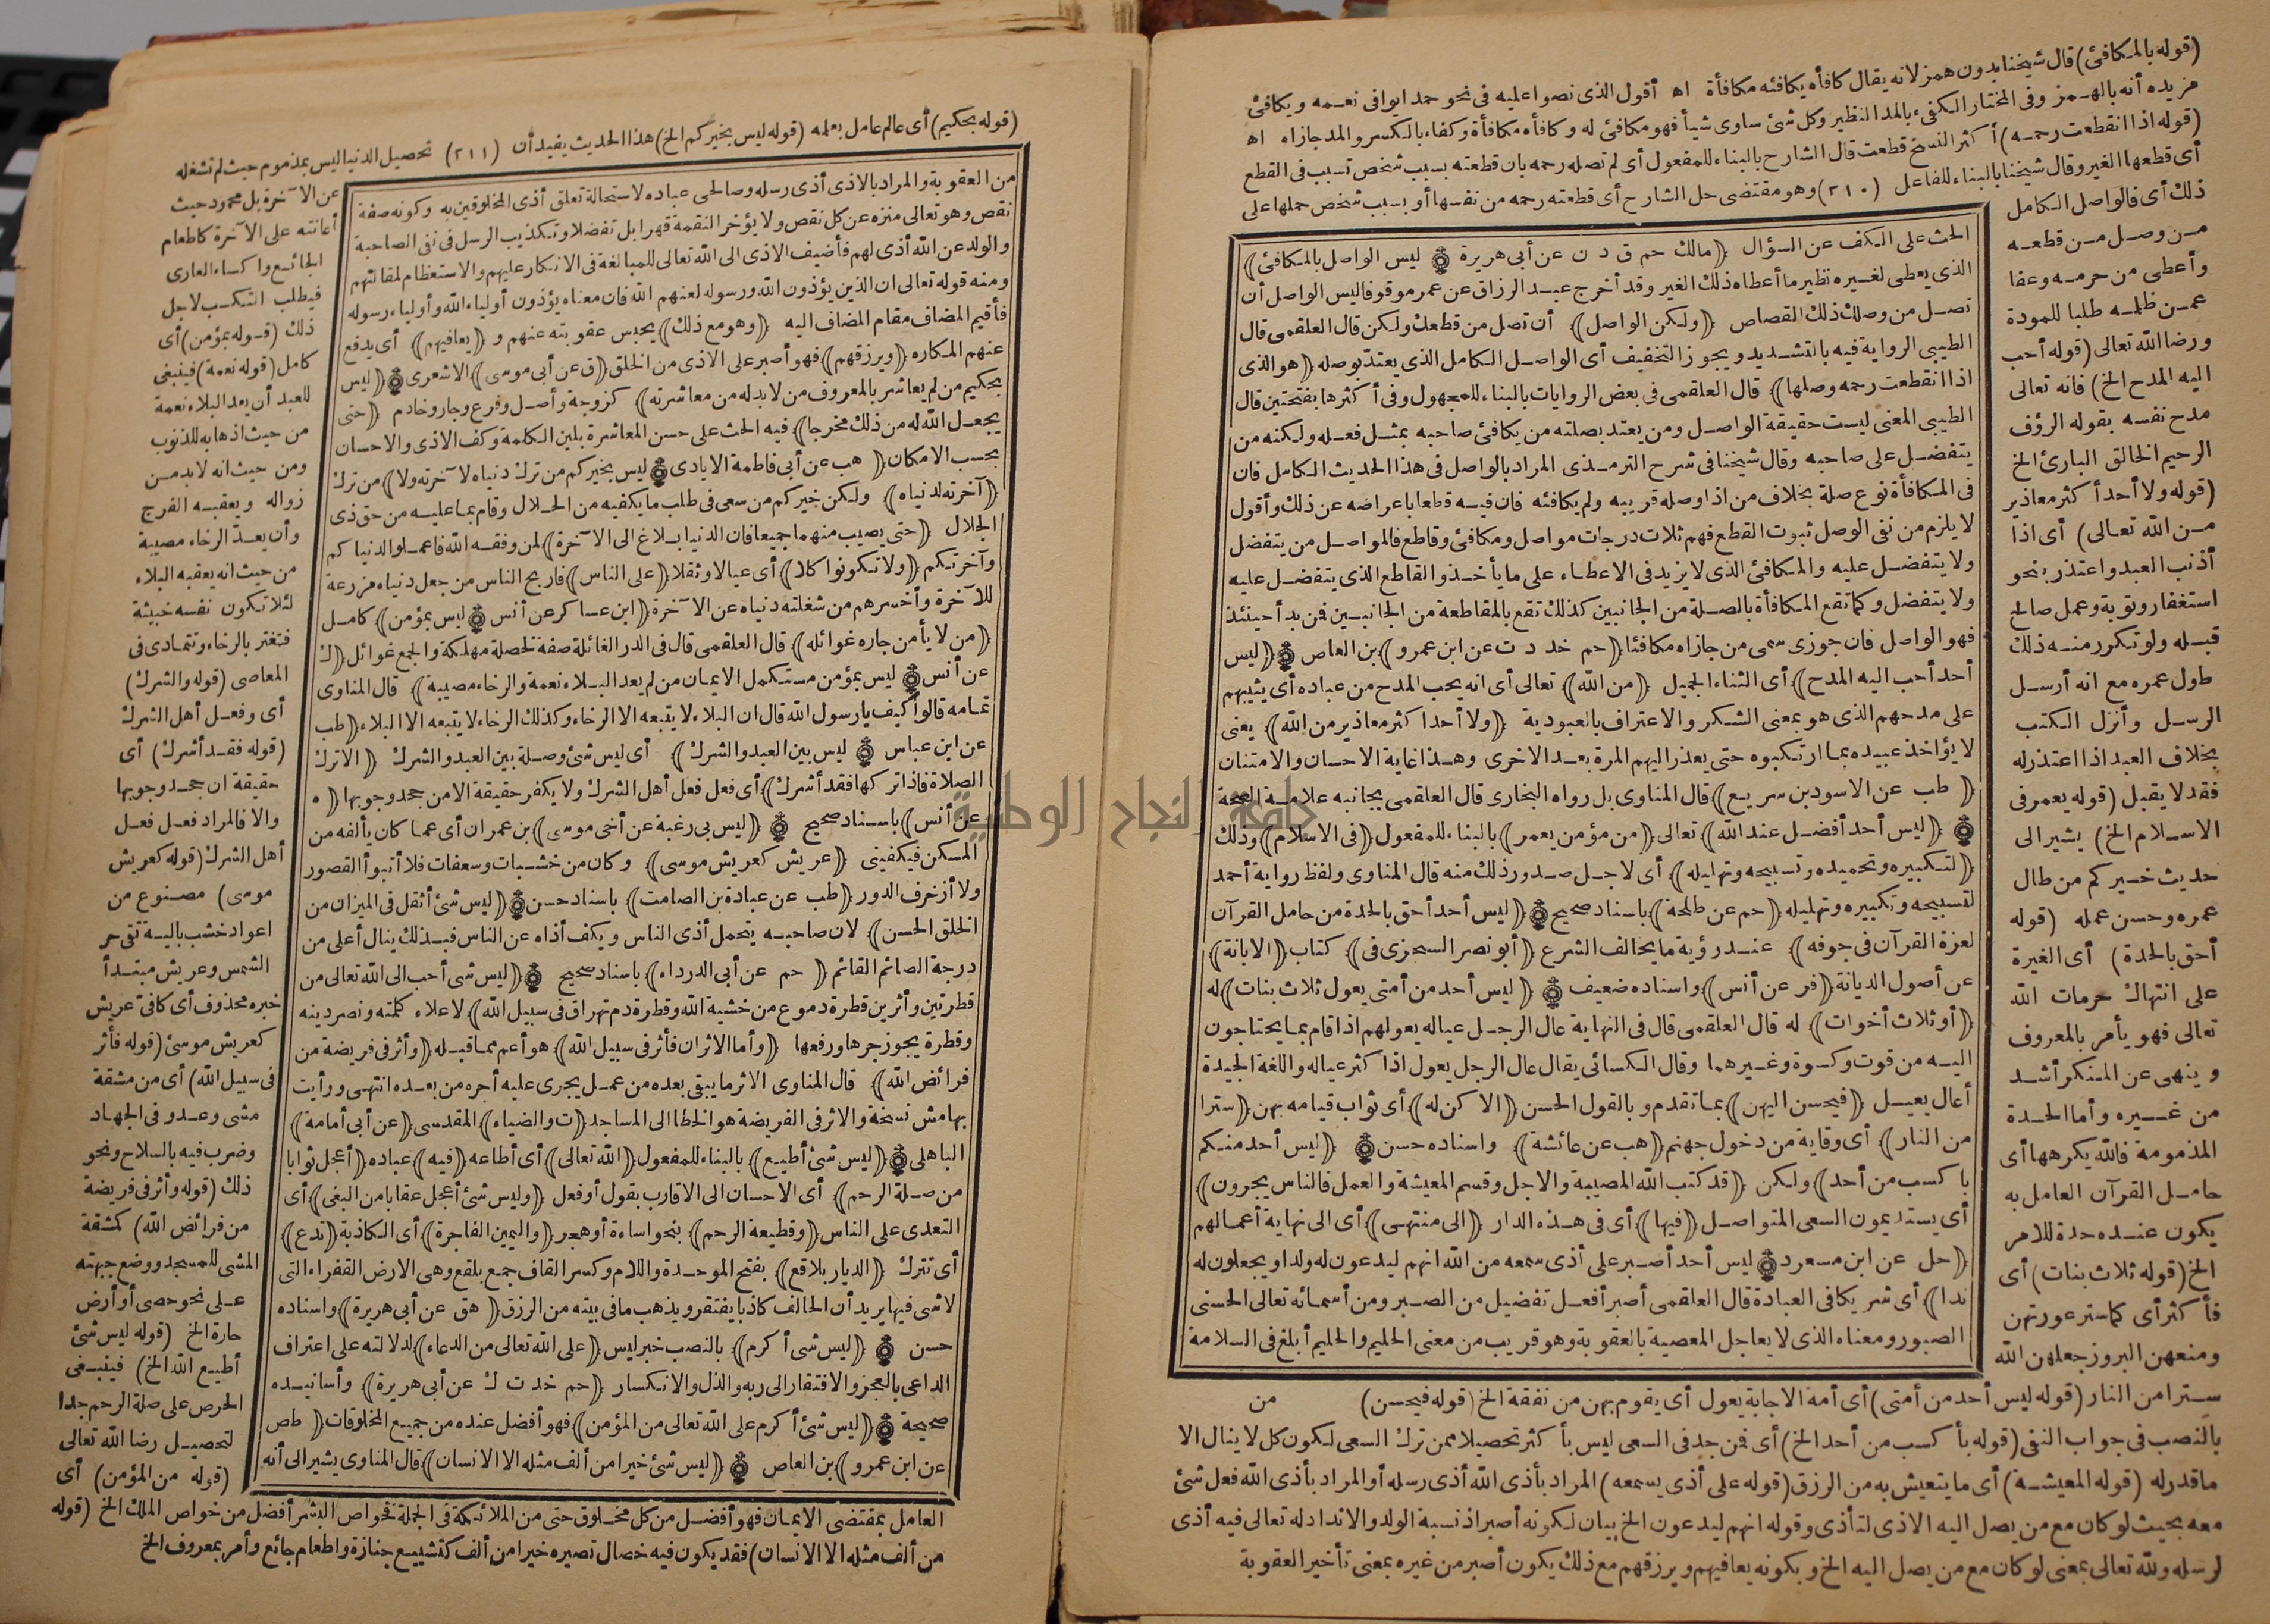 (قوله بالمكافئ) قال شيخنا بدون همز لانه يقال كافأه يكافئه مكافأة اه أقول الذى نصوا عليه فى نحو حمدا يوافى نعمه ويكافئ
مزيده أنه بالهمز وفى المختار الكفىء بالمد النظير وكل شئ ساوى شيأ فهو مكافئ له وكافأه مكافأة وكفاء بالكسر والمد جازاه اه
(قوله اذا انقطعت رحمه) أكثر النسخ قطعت قال الشارح بالبناء للمفعول أى لم تصله رحمه بان قطعته بسبب شخص تسبب فى القطع
أى قطعها الغير وقال شيخنا بالبناء للفاعل (٢١٠) وهو مقتضى حل الشارح أى قطعته رحمه من نفسها أو بسبب شخص حملها على
ذلك أى فالواصل الكامل
من وصل من قطعه
وأعطى من حرمه وعفا
عمن ظلمه طلبا للمودة
ورضا الله تعالى (قوله أحب
اليه المدح الخ) فانه تعالى
مدح نفسه بقوله الرؤف
الرحيم الخالق البارئ الخ
(قوله ولا أحد أكثر معاذير
من الله تعالى) أى اذا
أذنب العبد واعتذر بنحو
استغفار وتوبة وعمل صالح
قبله ولو تكرر منه ذلك
طول عمره مع انه أرسل
الرسل وأنزل الكتب
بخلاف العبد اذا اعتذر له
فقد لا يقبل (قوله يعمر فى
الاسلام الخ) يشير الى
حديث خيركم من طال
عمره وحسن عمله (قوله
أحق بالحدة) أى الغيرة
على انتهاك حرمات الله
تعالى فهو يأمر بالمعروف
وينهى عن المنكر أشد
من غيره وأما الحدة
المذمومة فالله يكرهها أى
حامل القرآن العامل به
يكون عنده حدة للامر
الخ (قوله ثلاث بنات) أى
فأكثر أى كما ستر عورتهن
ومنعهن البروز جعلهن الله
الحث على الكف عن السؤال ﴿مالك حم ق د ن عن أبى هريرة ۞ ليس الواصل بالمكافئ﴾
الذى يعطى لغيره نظير ما أعطاه ذلك الغير وقد أخرج عبد الرزاق عن عمر موقوفا ليس الواصل أن
تصل من وصلك ذلك القصاص ﴿ولكن الواصل﴾ أن تصل من قطعك ولكن قال العلقمى قال
الطيبى الرواية فيه بالتشديد ويجوز التخفيف أى الواصل الكامل الذى يعتد بوصله ﴿هو الذى
اذا انقطعت رحمه وصلها﴾ قال العلقمى فى بعض الروايات بالبناء للمجهول وفى أكثرها بفتحتين قال
الطيبى المعنى ليست حقيقة الواصل ومن يعتد بصلته من يكافئ صاحبه بمثل فعله ولكنه من
يتفضل على صاحبه وقال شيخنا فى شرح الترمذى المراد بالواصل فى هذا الحديث الكامل فان
فى المكافأة نوع صلة بخلاف من اذا وصله قريبه ولم يكافئه فان فيه قطعا باعراضه عن ذلك وأقول
لا يلزم من نفى الوصل ثبوت القطع فهم ثلاث درجات مواصل ومكافئ وقاطع فالمواصل من يتفضل
ولا يتفضل عليه والمكافئ الذى لا يزيد فى الاعطاء على ما يأخذ والقاطع الذى يتفضل عليه
ولا يتفضل وكما تقع المكافأة بالصلة من الجانبين كذلك تقع بالمقاطعة من الجانبين فمن بدأ حينئذ
فهو الواصل فان جوزى سمى من جازاه مكافئا ﴿حم خد د ت عن ابن عمرو﴾ بن العاص ۞ ﴿ليس
أحد أحب اليه المدح﴾ أى الثناء الجميل ﴿من الله﴾ تعالى أى انه يحب المدح من عباده أى يثيبهم
على مدحهم الذى هو بمعنى الشكر والاعتراف بالعبودية ﴿ولا أحد اكثر معاذير من الله﴾ يعنى
لا يؤاخذ عبيده بما ارتكبوه حتى يعذر اليهم المرة بعد الاخرى وهذا غاية الاحسان والامتنان
﴿طب عن الاسود بن سريع﴾ قال المناوى بل رواه البخارى قال العلقمى بجانبه علامة الصحة
۞ ﴿ليس أحد أفضل عند الله﴾ تعالى ﴿من مؤمن يعمر﴾ بالبناء للمفعول ﴿فى الاسلام﴾ وذلك
﴿لتكبيره وتحميده وتسبيحه وتهليله﴾ أى لاجل صدور ذلك منه قال المناوى ولفظ رواية أحمد
لتسبيحه وتكبيره وتهليله ﴿حم عن طلحة﴾ باسناد صحيح ۞ ﴿ليس أحد أحق بالحدة من حامل القرآن
لعزة القرآن فى جوفه﴾ عند رؤية ما يخالف الشرع ﴿أبو نصر السجزى فى﴾ كتاب ﴿الابانة﴾
عن أصول الديانة ﴿فر عن أنس﴾ واسناده ضعيف ۞ ﴿ليس أحد من أمتى يعول ثلاث بنات﴾ له
﴿أو ثلاث أخوات﴾ له قال العلقمى قال فى النهاية عال الرجل عياله يعولهم اذا قام بما يحتاجون
اليه من قوت وكسوة وغيرهما وقال الكسائى يقال عال الرجل يعول اذا كثر عياله واللغة الجيدة
أعال يعيل ﴿فيحسن اليهن﴾ بما تقدم وبالقول الحسن ﴿الا كن له﴾ أى ثواب قيامه بهن ﴿سترا
من النار﴾ أى وقاية من دخول جهنم ﴿هب عن عائشة﴾ واسناده حسن ۞ ﴿ليس أحد منكم
باكسب من أحد﴾ ولكن ﴿قد كتب الله المصيبة والاجل وقسم المعيشة والعمل فالناس يجرون﴾
أى يستديمون السعى المتواصل ﴿فيها﴾ أى فى هذه الدار ﴿الى منتهى﴾ أى الى نهاية أعمالهم
﴿حل عن ابن مسعود ۞ ليس أحد أصبر على أذى سمعه من الله انهم ليدعون له ولدا ويجعلون له
ندا﴾ أى شريكا فى العبادة قال العلقمى أصبر أفعل تفضيل من الصبر ومن أسمائه تعالى الحسنى
الصبور ومعناه الذى لا يعاجل المعصية بالعقوبة وهو قريب من معنى الحليم والحليم أبلغ فى السلامة
سترا من النار (قوله ليس أحد من أمتى) أى أمة الاجابة يعول أى يقوم بهن من نفقة الخ (قوله فيحسن) من
بالنصب فى جواب النفى (قوله بأكسب من أحد الخ) أى فمن جد فى السعى ليس بأكثر تحصيلا ممن ترك السعى لكون كل لا ينال الا
ما قدر له (قوله المعيشة) أى ما يتعيش به من الرزق (قوله على أذى يسمعه) المراد بأذى الله أذى رسله أو المراد بأذى الله فعل شئ
معه بحيث لو كان مع من يصل اليه الاذى لتأذى وقوله انهم ليدعون الخ بيان لكونه أصبر اذ نسبة الولد والانداد له تعالى فيه أذى
لرسله ولله تعالى بمعنى لو كان مع من يصل اليه الخ وبكونه يعافيهم ويرزقهم مع ذلك يكون أصبر من غيره بمعنى تأخير العقوبة
(قوله بحكيم) أى عالم عامل بعلمه (قوله ليس بخيركم الخ) هذا الحديث يفيد أن (٢١١) تحصيل الدنيا ليس بمذموم حيث لم تشغله
عن الآخرة بل محمود حيث
أعانته على الآخرة كاطعام
الجائع واكساء العارى
فيطلب التكسب لاجل
ذلك (قوله بمؤمن) أى
كامل (قوله نعمة) فينبغى
للعبد أن يعد البلاء نعمة
من حيث اذهابه للذنوب
ومن حيث انه لابد من
زواله ويعقبه الفرج
وأن يعد الرخاء مصيبة
من حيث انه يعقبه البلاء
لئلا تكون نفسه خبيثة
فتغتر بالرخاء وتتمادى فى
المعاصى (قوله والشرك)
أى وفعل أهل الشرك
(قوله فقد أشرك) أى
حقيقة ان جحد وجوبها
والا فالمراد فعل فعل
أهل الشرك (قوله كعريش
موسى) مصنوع من
اعواد خشب بالية تقى حر
الشمس وعريش مبتدأ
خبره محذوف أى كافى عريش
كعريش موسى (قوله فأثر
فى سبيل الله) أى من مشقة
مشى وعدو فى الجهاد
وضرب فيه بالسلاح ونحو
ذلك (قوله وأثر فى فريضة
من فرائض الله) كمشقة
المشى للمسجد ووضع جبهته
على نحو حصى أو أرض
حارة الخ (قوله ليس شئ
أطيع الله الخ) فينبغى
الحرص على صلة الرحم جدا
لتحصيل رضا الله تعالى
(قوله من المؤمن) أى
من العقوبة والمراد بالاذى أذى رسله وصالحى عباده لاستحالة تعلق أذى المخلوقين به وكونه صفة
نقص وهو تعالى منزه عن كل نقص ولا يؤخر النقمة قهرا بل تفضلا وتكذيب الرسل فى نفى الصاحبة
والولد عن الله أذى لهم فأضيف الاذى الى الله تعالى للمبالغة فى الانكار عليهم والاستعظام لمقالتهم
ومنه قوله تعالى ان الذين يؤذون الله ورسوله لعنهم الله فان معناه يؤذون أولياء الله وأولياء رسوله
فأقيم المضاف مقام المضاف اليه ﴿وهو مع ذلك﴾ يحبس عقوبته عنهم و﴿يعافيهم﴾ أى يدفع
عنهم المكاره ﴿ويرزقهم﴾ فهو أصبر على الاذى من الخلق ﴿ق عن أبى موسى﴾ الاشعرى ۞ ﴿ليس
بحكيم من لم يعاشر بالمعروف من لابد له من معاشرته﴾ كزوجة وأصل وفرع وجار وخادم ﴿حتى
يجعل الله له من ذلك مخرجا﴾ فيه الحث على حسن المعاشرة بلين الكلمة وكف الاذى والاحسان
بحسب الامكان ﴿هب عن أبى فاطمة الايادى ۞ ليس بخيركم من ترك دنياه لآخرته ولا﴾ من ترك
﴿آخرته لدنياه﴾ ولكن خيركم من سعى فى طلب ما يكفيه من الحلال وقام بما عليه من حق ذى
الجلال ﴿حتى يصيب منهما جميعا فان الدنيا بلاغ الى الآخرة﴾ لمن وفقه الله فاعملوا لدنياكم
وآخرتكم ﴿ولا تكونوا كلا﴾ أى عيالا وثقلا ﴿على الناس﴾ فاربح الناس من جعل دنياه مزرعة
للآخرة وأخسرهم من شغلته دنياه عن الآخرة ﴿ابن عساكر عن أنس ۞ ليس بمؤمن﴾ كامل
﴿من لا يأمن جاره غوائله﴾ قال العلقمى قال فى الدر الغائلة صفة لخصلة مهلكة والجمع غوائل ﴿ك
عن أنس ۞ ليس بمؤمن مستكمل الايمان من لم يعد البلاء نعمة والرخاء مصيبة﴾ قال المناوى
تمامه قالوا كيف يا رسول الله قال ان البلاء لا يتبعه الا الرخاء وكذلك الرخاء لا يتبعه الا البلاء ﴿طب
عن ابن عباس ۞ ليس بين العبد والشرك﴾ أى ليس شئ وصلة بين العبد والشرك ﴿الا ترك
الصلاة فاذا تركها فقد أشرك﴾ أى فعل فعل أهل الشرك ولا يكفر حقيقة الا من جحد وجوبها ﴿ه
عن أنس﴾ باسناد صحيح ۞ ﴿ليس بى رغبة عن أخى موسى﴾ بن عمران أى عما كان يألفه من
المسكن فيكفينى ﴿عريش كعريش موسى﴾ وكان من خشبات وسعفات فلا أتبوأ القصور
ولا أزخرف الدور ﴿طب عن عبادة بن الصامت﴾ باسناد حسن ۞ ﴿ليس شئ أثقل فى الميزان من
الخلق الحسن﴾ لان صاحبه يتحمل أذى الناس ويكف أذاه عن الناس فبذلك ينال أعلى من
درجة الصائم القائم ﴿حم عن أبى الدرداء﴾ باسناد صحيح ۞ ﴿ليس شى أحب الى الله تعالى من
قطرتين وأثرين قطرة دموع من خشية الله وقطرة دم تهراق فى سبيل الله﴾ لاعلاء كلمته ونصر دينه
وقطرة يجوز جرها ورفعها ﴿وأما الاثران فأثر فى سبيل الله﴾ هو أعم مما قبله ﴿وأثر فى فريضة من
فرائض الله﴾ قال المناوى الاثر ما يبقى بعده من عمل يجرى عليه أجره من بعده انتهى ورأيت
بهامش نسخة والاثر فى الفريضة هو الخطا الى المساجد ﴿ت والضياء﴾ المقدسى ﴿عن أبى أمامة﴾
الباهلى ۞ ﴿ليس شئ أطيع﴾ بالبناء للمفعول ﴿الله تعالى﴾ أى أطاعه ﴿فيه﴾ عباده ﴿أعجل ثوابا
من صلة الرحم﴾ أى الاحسان الى الاقارب بقول أو فعل ﴿وليس شئ أعجل عقابا من البغى﴾ أى
التعدى على الناس ﴿وقطيعة الرحم﴾ بنحو اساءة أو هجر ﴿واليمين الفاجرة﴾ أى الكاذبة ﴿تدع﴾
أى تترك ﴿الديار بلاقع﴾ بفتح الموحدة واللام وكسر القاف جمع بلقع وهى الارض القفراء التى
لا شى فيها يريد أن الحالف كاذبا يفتقر ويذهب ما فى بيته من الرزق ﴿هق عن أبى هريرة﴾ واسناده
حسن ۞ ﴿ليس شى أكرم﴾ بالنصب خبر ليس ﴿على الله تعالى من الدعاء﴾ لدلالته على اعتراف
الداعى بالعجز والافتقار الى ربه والذل والانكسار ﴿حم خد ت ك عن أبى هريرة﴾ وأسانيده
صحيحة ۞ ﴿ليس شئ أكرم على الله تعالى من المؤمن﴾ فهو أفضل عنده من جميع المخلوقات ﴿طص
عن ابن عمرو﴾ بن العاص ۞ ﴿ليس شئ خيرا من ألف مثله الا الانسان﴾ قال المناوى يشير الى أنه
العامل بمقتضى الايمان فهو أفضل من كل مخلوق حتى من الملائكة فى الجملة فخواص البشر أفضل من خواص الملك الخ (قوله
من ألف مثله الا الانسان) فقد يكون فيه خصال تصيره خيرا من ألف كتشييع جنازة واطعام جائع وأمر بمعروف الخ
جامعة النجاح الوطنية